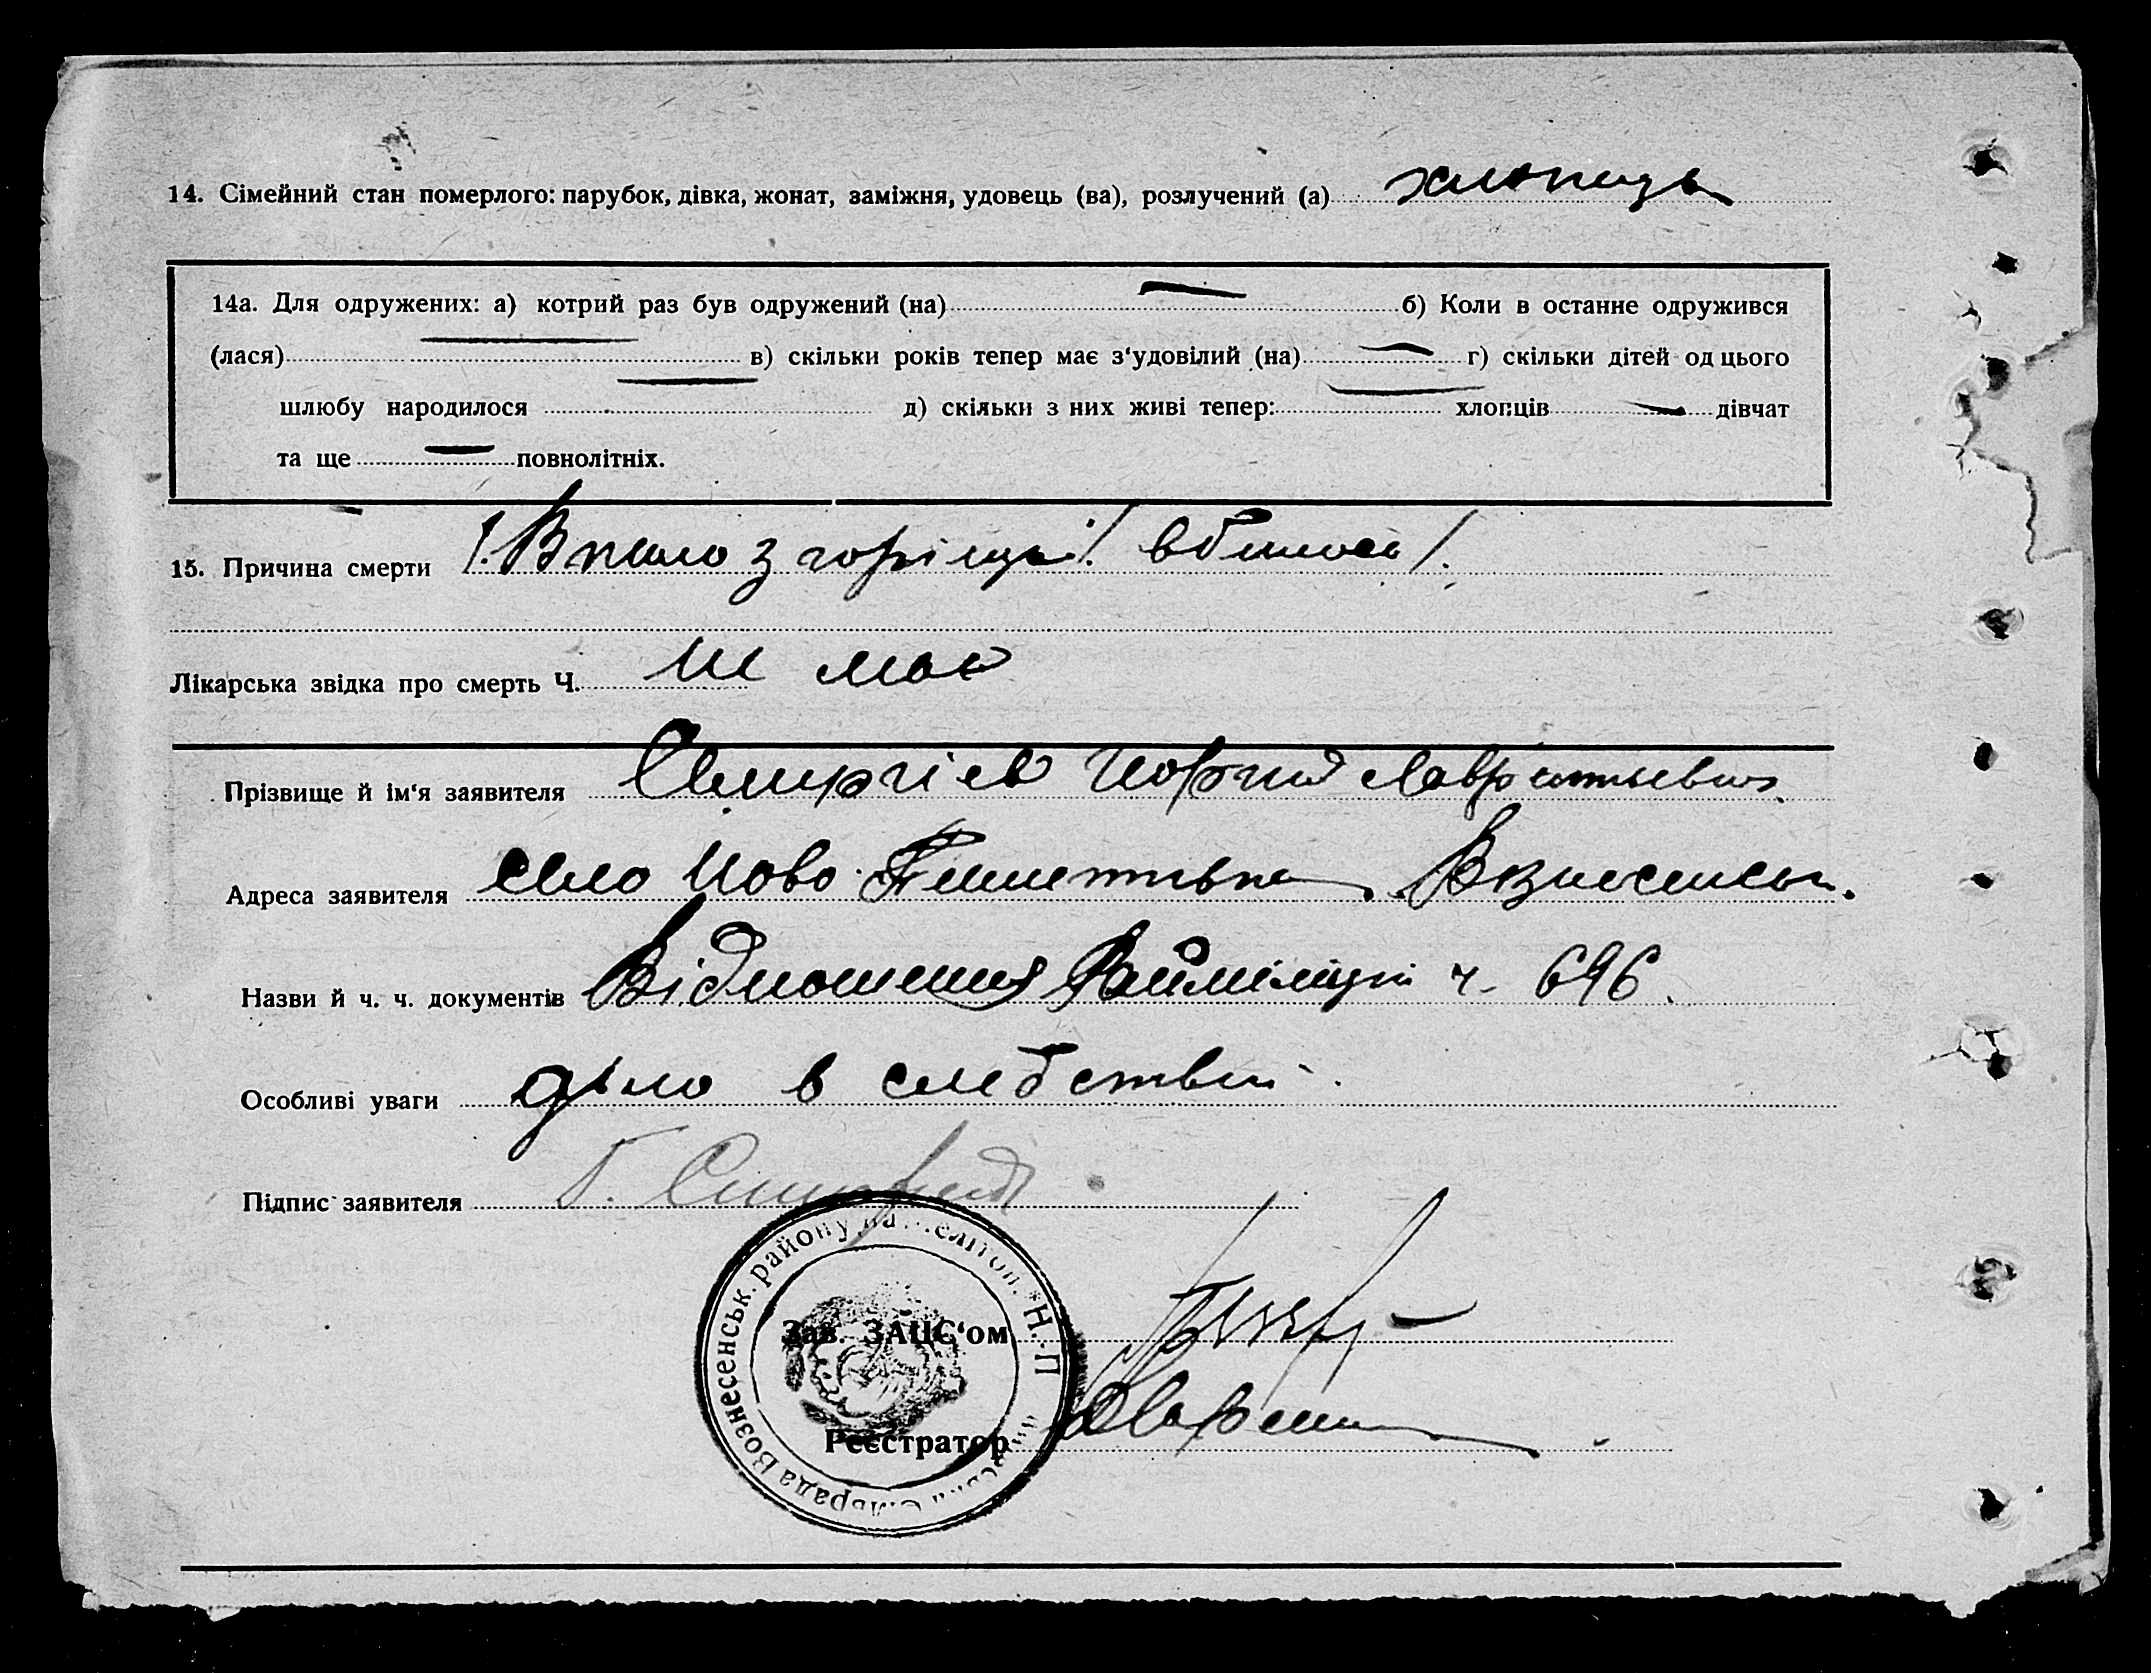 14. Сімейний стан померлого: парубок, дівка, жонат, заміжня, удовець (ва), розлучений (а) хлопець
14а. Для одружених: а) котрий раз був одружений (на) — б) Коли в останнє одружився
(лася) — в) скільки років тепер має з‘удовілий (на) — г) скільки дітей од цього
шлюбу народилося — д) скільки з них живі тепер: — хлопців — дівчат
та ще — повнолітніх.
15. Причина смерти /. Впало з горіща! вбилось /.
Лікарська звідка про смерть Ч. не має
Прізвище й ім‘я заявителя
Адреса заявителя село Ново
Назви й ч. ч. документів Відношення Райміліції ч. 696.
Особливі уваги діло в слебствии.
Підпис заявителя Г.
Возненсенськ. району на
Зав. ЗАЦС‘ом
Реєстратор